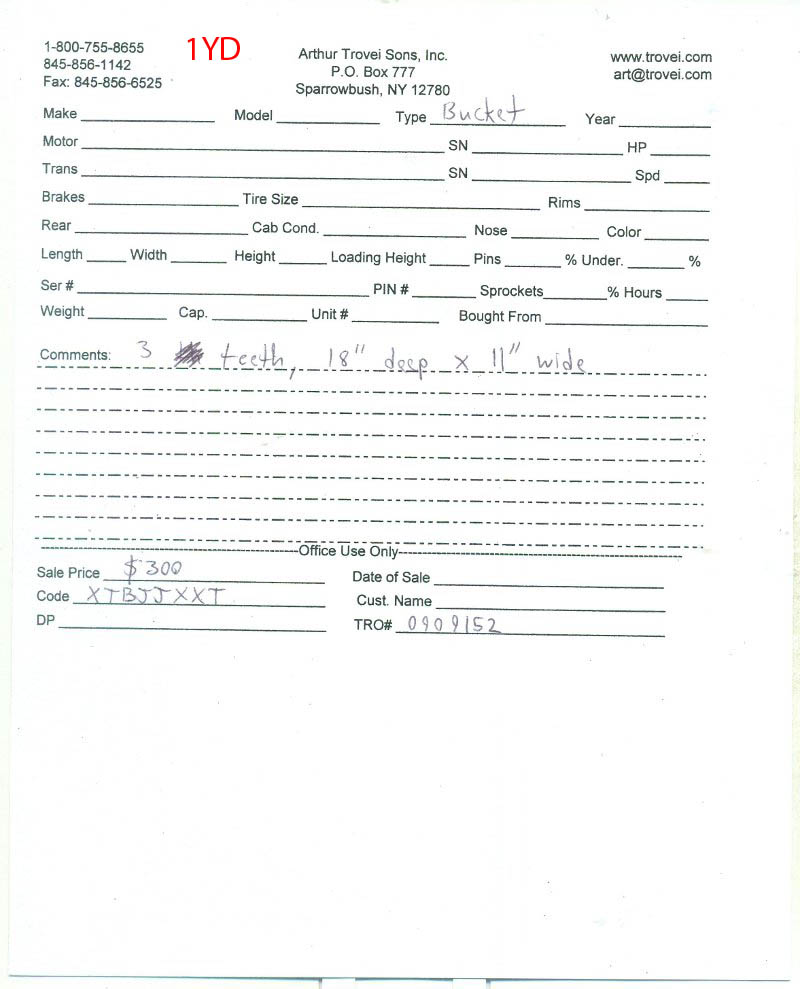 1-800-755-8655
845-856-1142
Fax: 845-856-6525
1YD
Arthur Trovei Sons, Inc.
P.O. Box 777
Sparrowbush, NY 12780
www.trovei.com
art@trovei.com
Make Model Type Bucket Year
Motor SN HP
Trans SN Spd
Brakes Tire Size Rims
Rear Cab Cond. Nose Color
Length Width Height Loading Height Pins % Under. %
Ser # PIN # Sprockets % Hours
Weight Cap. Unit # Bought From
Comments: 3 teeth, 18" deep x 11" wide
Office Use Only
Sale Price $300 Date of Sale
Code XTBJJXXT Cust. Name
DP TRO# 0909152